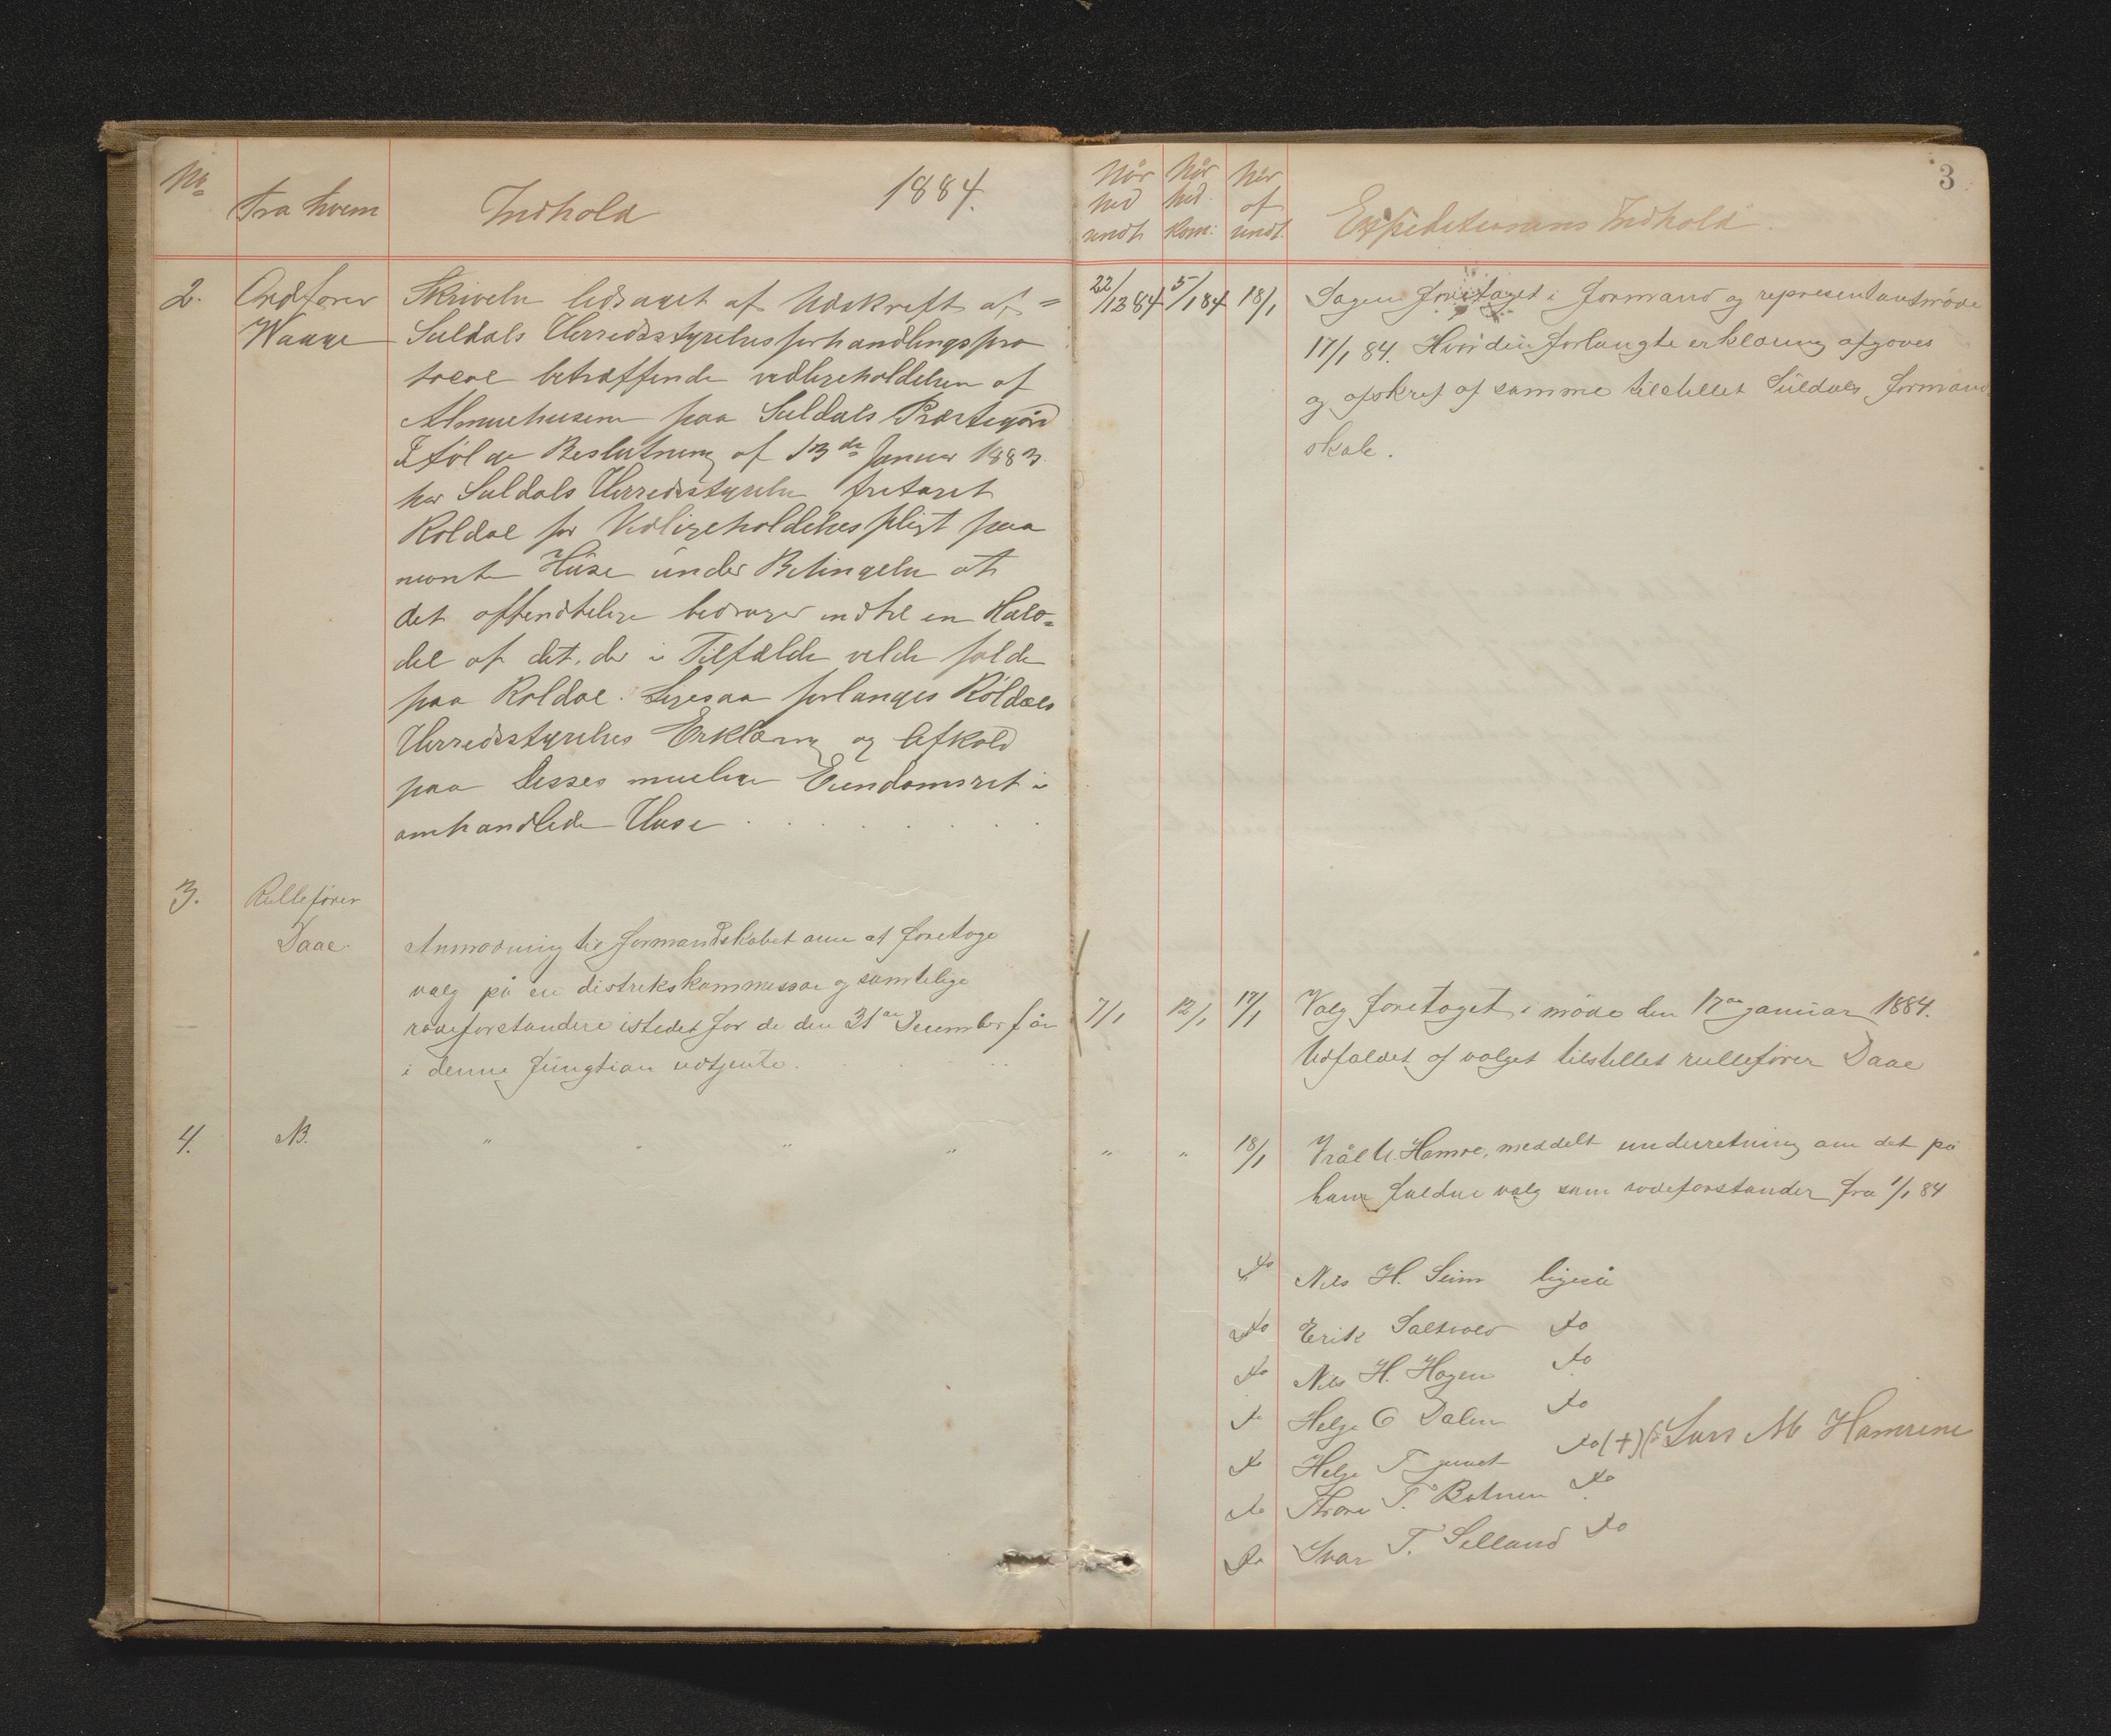 No
fra hvem
Indhold
1884.
2.
Ordfører
Waage
Skrivelse ledsaget af Udskrift af
Suldals Herredsstyrelses forhandlingspro
tocol betræffende vedligeholdelsen af
Almuehusene paa Suldals Præstegård
Ifølge Beslutning af 13de Januar 1883
har Suldals Herredsstyrelse fritaget
Røldal for Vedligeholdelsespligt paa
nævnte Huse under Betingelse at
det offendtlige bedrager indtil en Halv=
del af det, der i Tilfælde vilde falde
paa Røldal. Ligesaa forlanges Røldals
Herredsstyrelses Erklæring og Afkald
paa Disses mulige Eiendomsret i
omhandlede Huse
3.
Rullefører
Daae
Anmodning til formandskabet om at foretage
valg på en distrikskommissær og samtlige
rodeforstandere istedet for de den 31te December f år
i denne fungtion udtjente.
4.
NB.
" " " "
3
Når
ned
sendt
Når
ned.
kom:
Når
af
sendt.
Expeditionens Indhold.
22/12 84 5/1 84 18/1
Sagen foretaget i formand og representantmøde
17/1 84. Hvor den forlangte erklæring afgaves
og afskrift af samme tilstillet Suldals formand
skab.
7/1 12/1 17/1
Valg foretaget i møde den 17de januar 1884.
Udfaldet af valget tilstillet rullefører Daae
" " 18/1
Vråle U. Hamre, meddelt underretning om det på
ham faldne valg som rodeforstander fra 1/1 84
do Nils H. Seim ligeså
do Erik Saltvold do
do Nils H. Hagen do
do Helge O Dalen do
do Helge T do (+) Lars M Hamrene
do Thore T. Botnen do
do Ivar T. Selland do